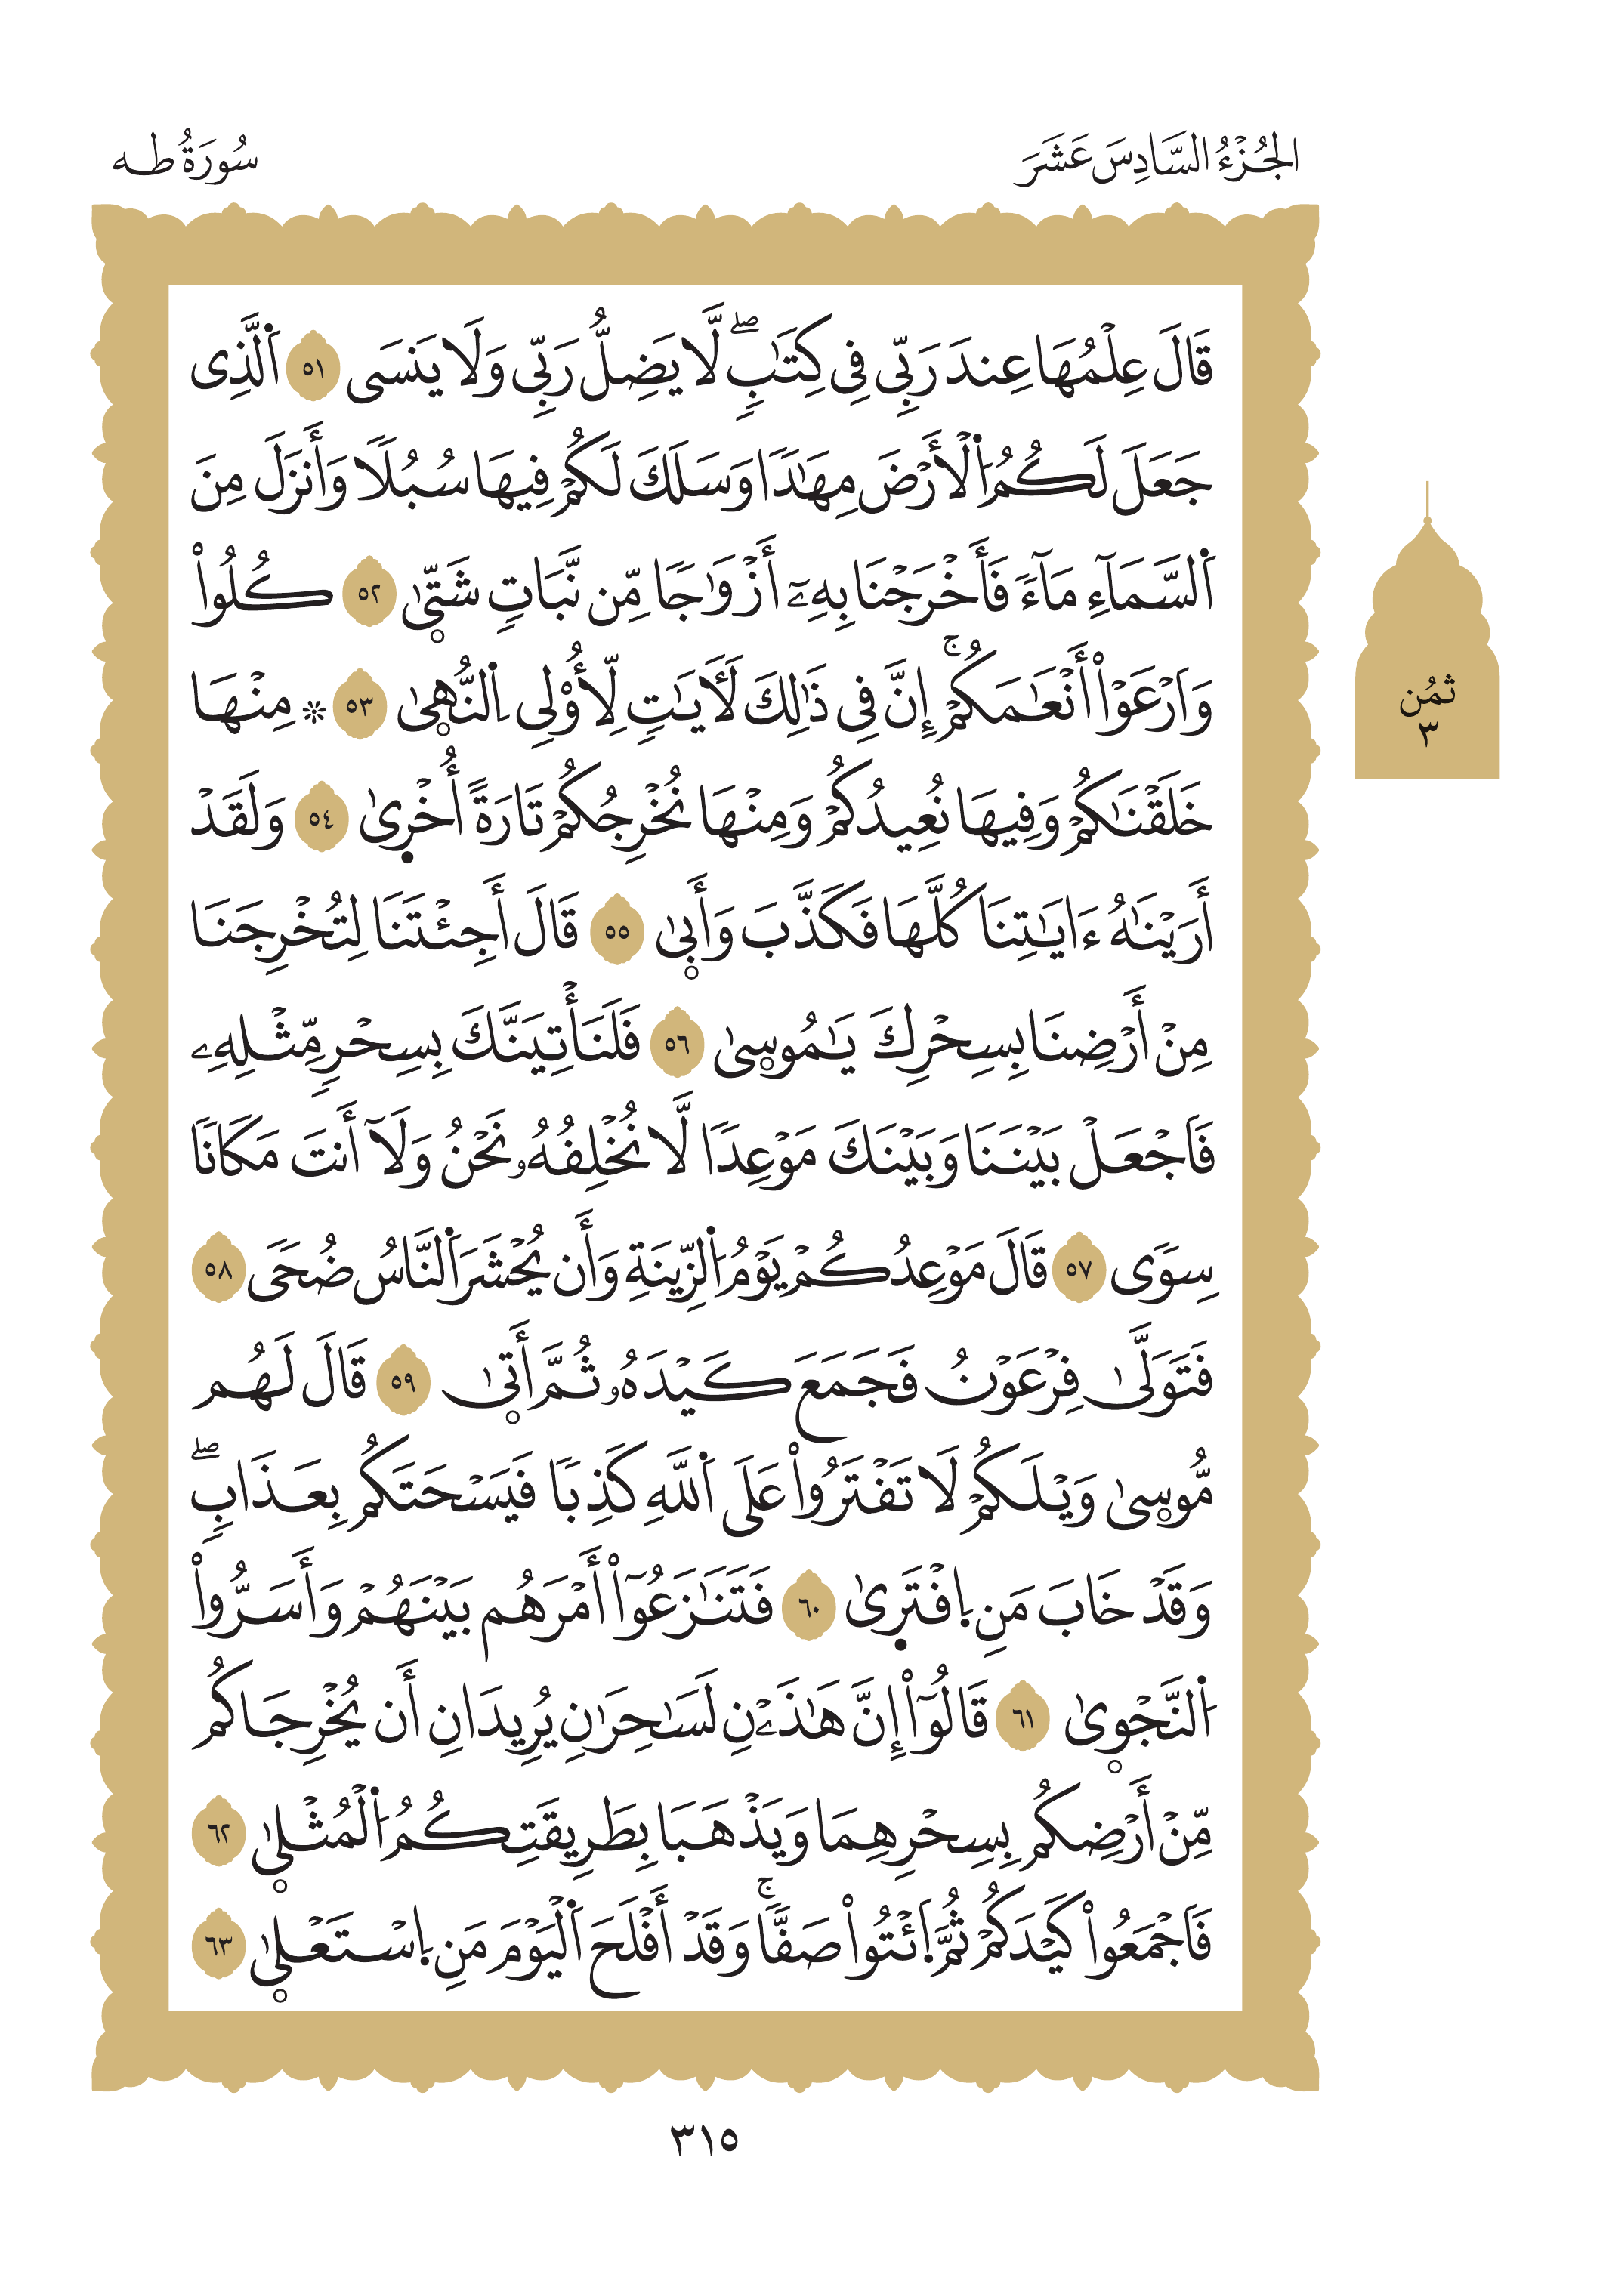 الجُزْءُ السَّادِسَ عَشَرَ
سُورَةُ طه
قَالَ عِلْمُهَا عِندَ رَبِّى فِى كِتَٰبٍۖ لَّا يَضِلُّ رَبِّى وَلَا يَنسَى ٥١ اَ۬لَّذِى
جَعَلَ لَكُمُ اُ۬لْأَرْضَ مِهَٰدًا وَسَلَكَ لَكُمْ فِيهَا سُبُلًا وَأَنزَلَ مِنَ
اَ۬لسَّمَآءِ مَآءً فَأَخْرَجْنَا بِهِۦٓ أَزْوَٰجًا مِّن نَّبَاتٍ شَتّ۪ىٰ ٥٢ كُلُواْ
وَارْعَوْاْ أَنْعَٰمَكُمْۚ إِنَّ فِى ذَٰلِكَ لَأٓيَٰتٍ لِّأُوْلِى اِ۬لنُّه۪ىٰ ٥٣ ۞ مِنْهَا
خَلَقْنَٰكُمْ وَفِيهَا نُعِيدُكُمْ وَمِنْهَا نُخْرِجُكُمْ تَارَةً أُخْر۪ىٰ ٥٤ وَلَقَدْ
أَرَيْنَٰهُ ءَايَٰتِنَا كُلَّهَا فَكَذَّبَ وَأَب۪ىٰ ٥٥ قَالَ أَجِئْتَنَا لِتُخْرِجَنَا
مِنْ أَرْضِنَا بِسِحْرِكَ يَٰمُوس۪ىٰ ٥٦ فَلَنَأْتِيَنَّكَ بِسِحْرٍ مِّثْلِهِۦ
فَاَجْعَلْ بَيْنَنَا وَبَيْنَكَ مَوْعِدًا لَّا نُخْلِفُهُۥ نَحْنُ وَلَآ أَنتَ مَكَانًا
سِوًى ٥٧ قَالَ مَوْعِدُكُمْ يَوْمُ اُ۬لزِّينَةِ وَأَن يُحْشَرَ اَ۬لنَّاسُ ضُحًى ٥٨
فَتَوَلَّىٰ فِرْعَوْنُ فَجَمَعَ كَيْدَهُۥ ثُمَّ أَت۪ىٰ ٥٩ قَالَ لَهُم
مُّوس۪ىٰ وَيْلَكُمْ لَا تَفْتَرُواْ عَلَى اَ۬للَّهِ كَذِبًا فَيَسْحَتَكُم بِعَذَابٍۖ
وَقَدْ خَابَ مَنِ اِ۪فْتَر۪ىٰ ٦٠ فَتَنَٰزَعُوٓاْ أَمْرَهُم بَيْنَهُمْ وَأَسَرُّواْ
اُ۬لنَّجْو۪ىٰ ٦١ قَالُوٓاْ إِنَّ هَٰذَيْنِ لَسَٰحِرَٰنِ يُرِيدَانِ أَن يُخْرِجَاكُم
مِّنْ أَرْضِكُم بِسِحْرِهِمَا وَيَذْهَبَا بِطَرِيقَتِكُمُ اُ۬لْمُثْل۪ىٰ ٦٢
فَاَجْمَعُواْ كَيْدَكُمْ ثُمَّ اَ۪ئْتُواْ صَفًّاۚ وَقَدْ أَفْلَحَ اَ۬لْيَوْمَ مَنِ اِ۪سْتَعْل۪ىٰ ٦٣
ثمُن
٣
٣١٥